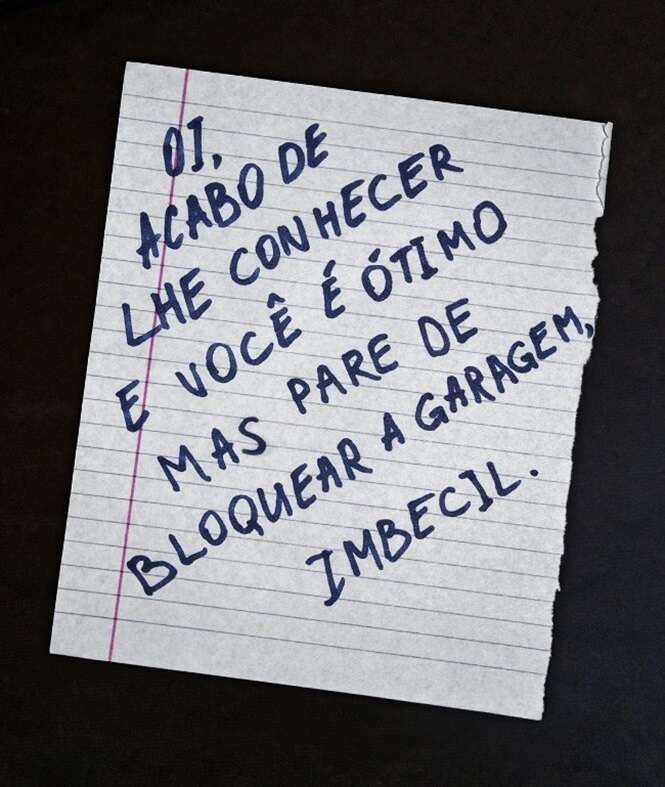 OI,
ACABO DE
LHE CONHECER
E VOCÊ É ÓTIMO
MAS PARE DE
BLOQUEAR A GARAGEM,
IMBECIL.